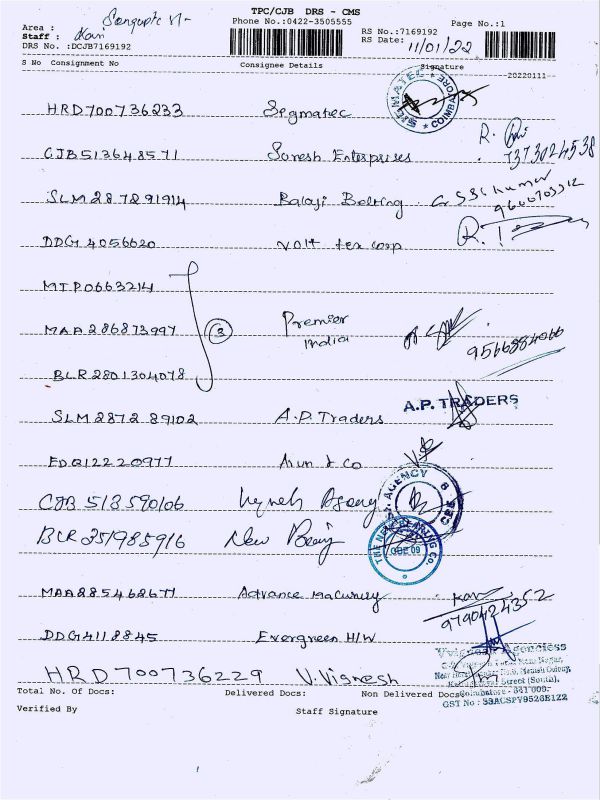 TPC/CJB DRS - CMS
Phone No.:0422-3505555
Page No.:1
Area :
Staff : Kavi
DRS No. :DCJB7169192
RS No.:7169192
RS Date: 11/01/22
S No Consignment No Consignee Details Signature
20220111
HRD700736233 Segmatec
R.
7373024538
CJB513648571 Suresh Enterprises
SLM287291914 Balaji Belting
DDG4056620 Volt tex corp
R.
MTP0663214
MAA286873997 (3) Premier India
9566884066
BLR2801304078
A.P. TRADERS
SLM287289102 A.P. Traders
EDQ12220977 & Co
CJB 513590106
AGENCY
BLR 351985916 New
THE NEW BEARING CO.
CBE 09
MAA285462677 Advance Machinery
9790424352
DDG4118845 Evergreen H/W
HRD700736229 V. Vignesh
Agencies
Coimbatore - 641 009.
GST No : 33ACSPV9526E1Z2
Total No. Of Docs: Delivered Docs: Non Delivered Docs:
Verified By Staff Signature